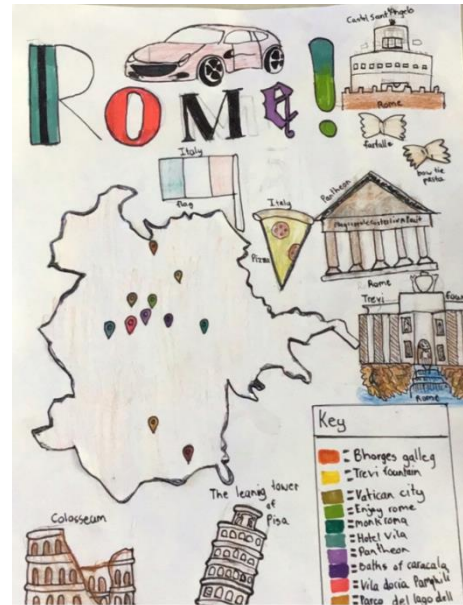 ROME!
Castel Sant'Angelo
Rome
farfalle
bow tie
pasta
Italy
flag
Italy
Pizza
Pantheon
Rome
Trevi
Rome
Key
= Bhorges galleg
= Trevi fountain
= Vatican city
= Enjoy rome
= monk roma
= Hotel Vila
= Pantheon
= Baths of caracala
= Vila doria Pamphili
= Parco del lago dell
The leanig tower
of
Pisa
Colosseam